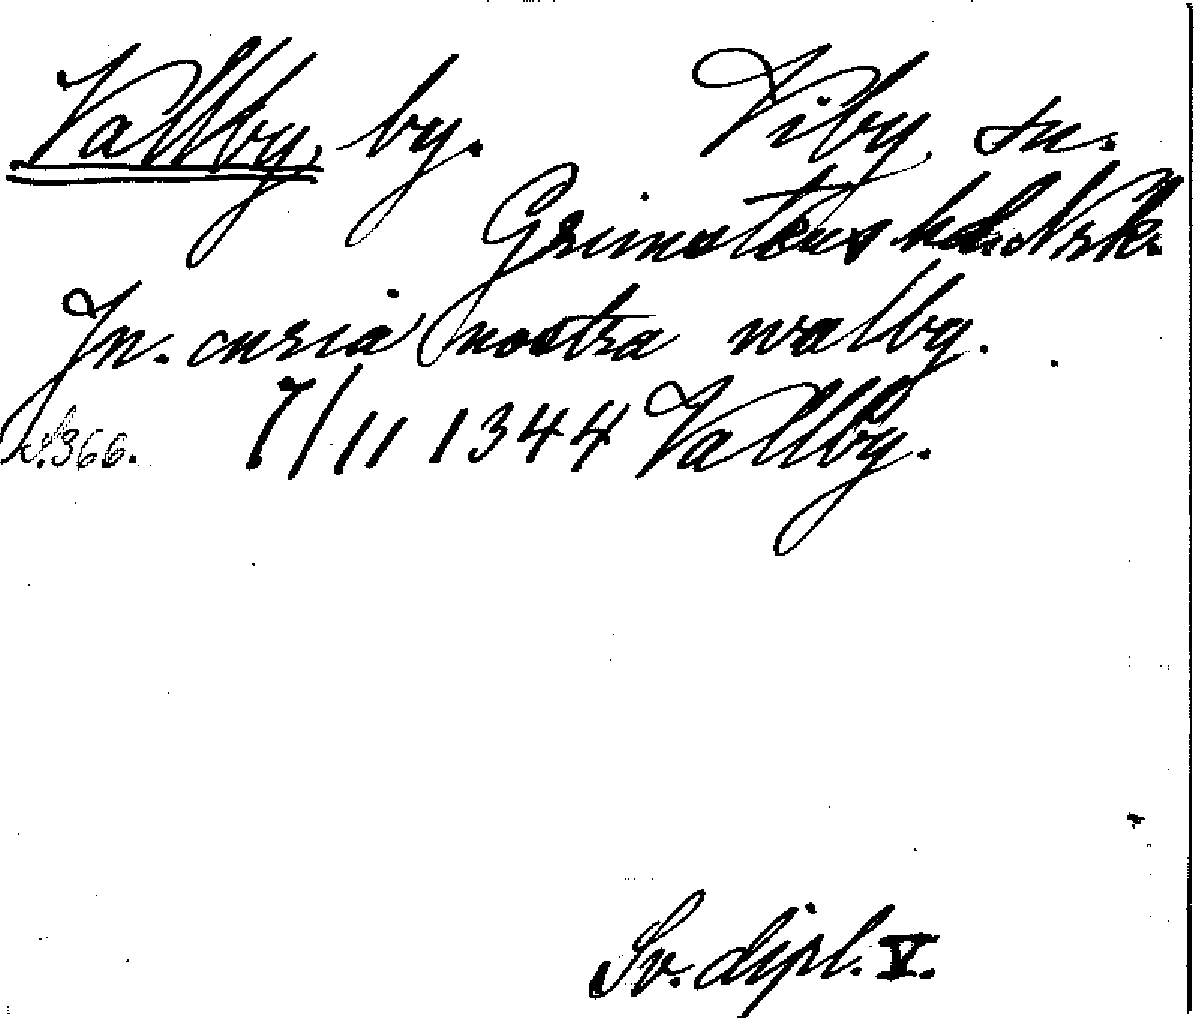 Vallby, by. Viby sn.
Grimstens hd. Nrk.
In. curia (nostra walby.
S. 366. 7/11 1344 Vallby.
Sv. dipl. V.